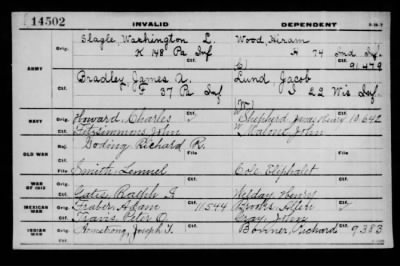 14502 INVALID DEPENDENT
ARMY
Orig. Slagle, Washington L. Wood, Hiram
K 148 Pa Inf H 74 Ind Inf
Ctf. C) 91479
Orig. Bradley, James A. Lund, Jacob
F 37 Pa Inf I 22 Wis Inf
Ctf. (W)
NAVY Orig. Howard, Charles Shepherd, Henry 10642
Ctf. Fitzsimmons, John Malone, John
OLD WAR Rej. Doding Richard R.
File Smith Lemuel File Cole Eliphalet
WAR OF 1812 Orig.
Ctf. Gates Ralph Henry
MEXICAN WAR Orig. Graber, Adam 11544 Brooks,
Ctf. Travis, Peter O. Gray, John
INDIAN WAR Orig. Armstrong, Joseph T. Richard 9383
Ctf.